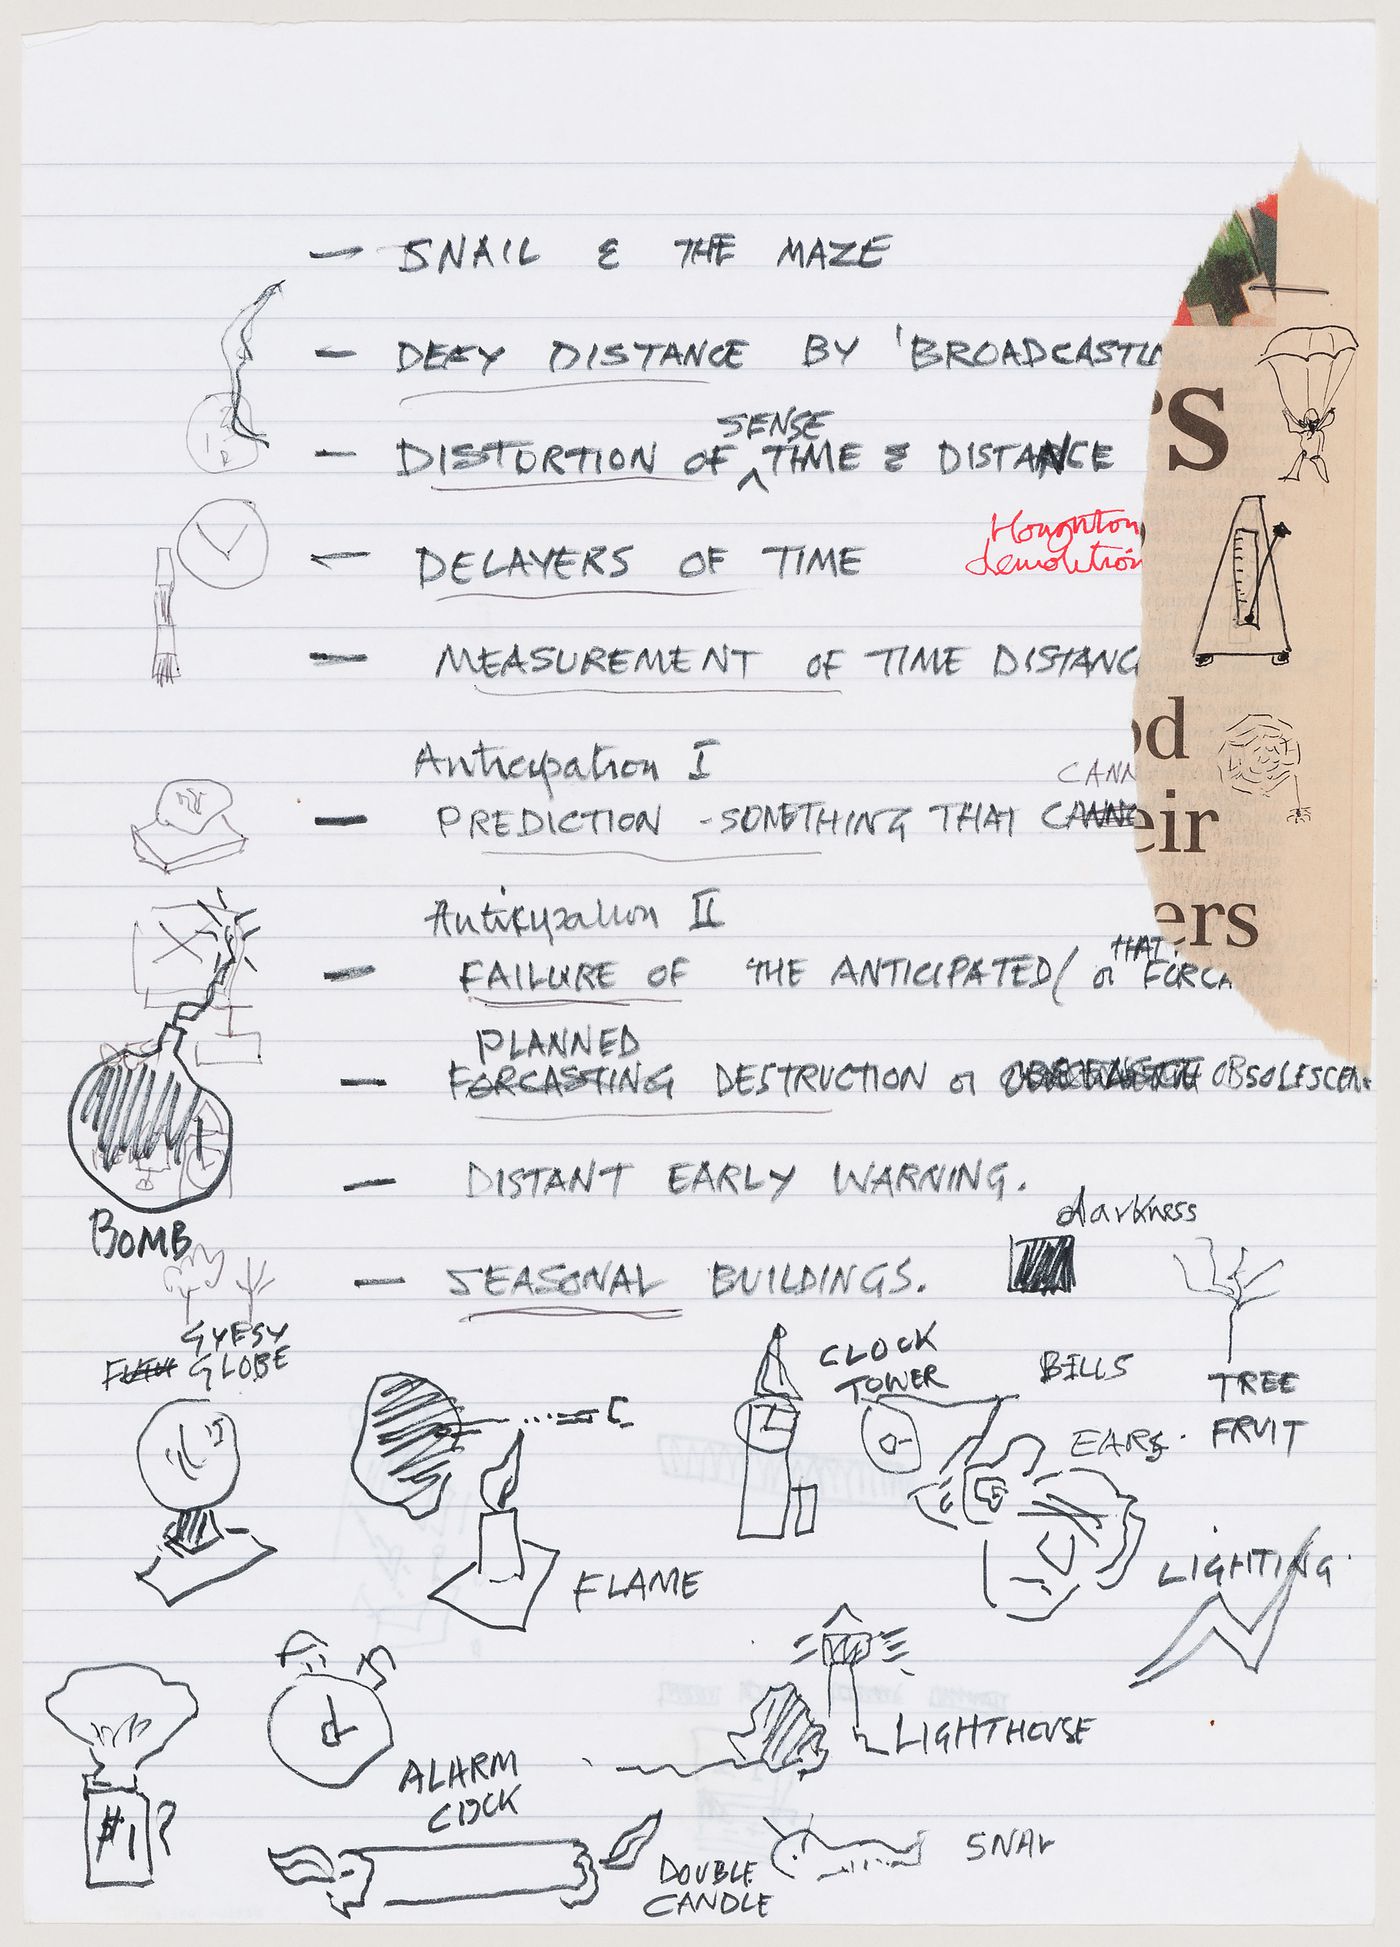 — SNAIL & THE MAZE
— DEFY DISTANCE BY 'BROADCASTIN
SENSE
— DISTORTION OF ^ TIME & DISTANCE
— DELAYERS OF TIME
Houghton
demolition
— MEASUREMENT OF TIME DISTANC
Anticipation I
CANN
— PREDICTION - SOMETHING THAT CANNO
Anticipation II
THAT
— FAILURE OF THE ANTICIPATED/ or FORCA
PLANNED
— FORCASTING DESTRUCTION or OBSOLESCEN
— DISTANT EARLY WARNING.
— SEASONAL BUILDINGS.
rs
od
eir
ers
BOMB
darkness
GYPSY
GLOBE
CLOCK
TOWER
BILLS
TREE
FRUIT
EARS.
FLAME
LIGHTING.
ALARM
CLOCK
LIGHTHOUSE
#1?
DOUBLE
CANDLE
SNAL